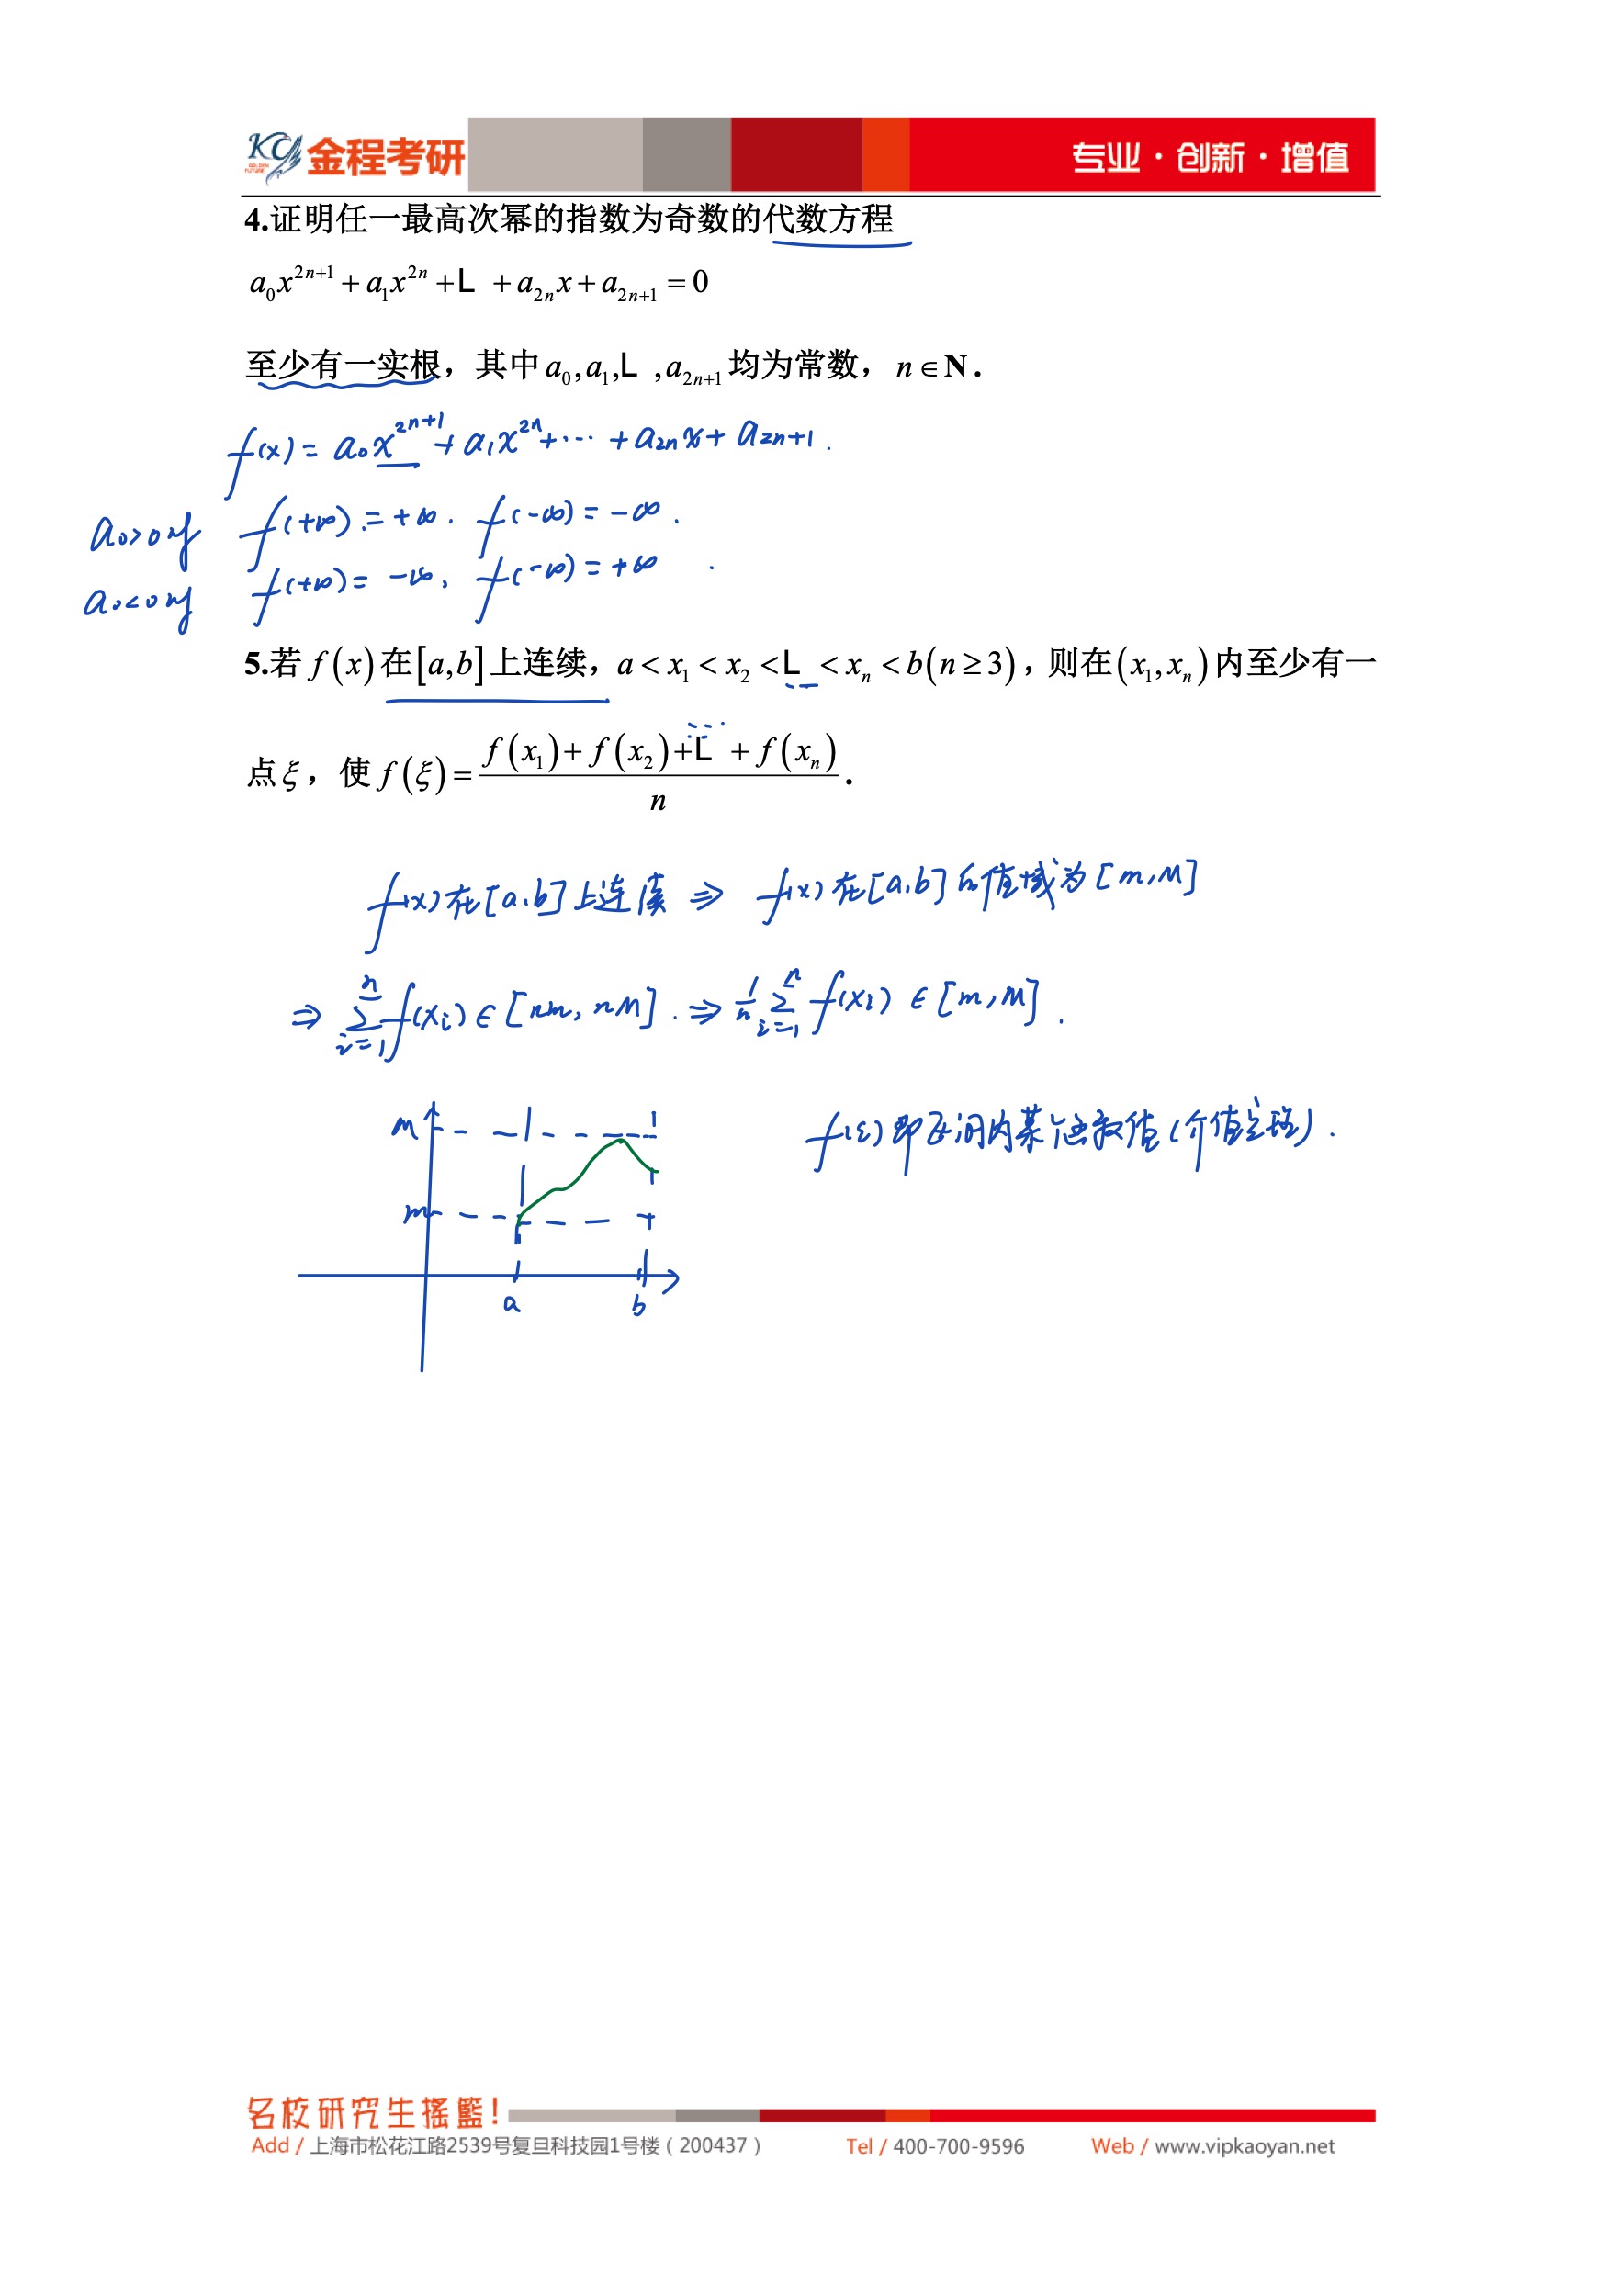 KCG 金程考研 专业·创新·增值
GOLDEN FUTURE
4.证明任一最高次幂的指数为奇数的代数方程
a₀x²ⁿ⁺¹ + a₁x²ⁿ + L + a₂ₙx + a₂ₙ₊₁ = 0
至少有一实根，其中 a₀,a₁,L ,a₂ₙ₊₁ 均为常数， n ∈ N .
f(x) = a₀x²ⁿ⁺¹ + a₁x²ⁿ + ⋯ + a₂ₙx + a₂ₙ₊₁ .
a₀>0时 f(+∞) = +∞. f(-∞) = -∞.
a₀<0时 f(+∞) = -∞, f(-∞) = +∞.
5.若 f(x) 在[a,b]上连续， a < x₁ < x₂ < L < xₙ < b(n ≥ 3)，则在(x₁,xₙ)内至少有一
点ξ，使 f(ξ) = (f(x₁) + f(x₂) + L + f(xₙ))/n .
f(x)在[a,b]上连续 ⇒ f(x)在[a,b]的值域为[m,M]
⇒ ∑ᵢ₌₁ⁿ f(xᵢ) ∈ [nm, nM]. ⇒ 1/n ∑ᵢ₌₁ⁿ f(xᵢ) ∈ [m,M].
M
f(ξ)即区间内某个函数值(介值定理).
m
a b
名校研究生搖籃!
Add / 上海市松花江路2539号复旦科技园1号楼（200437） Tel / 400-700-9596 Web / www.vipkaoyan.net